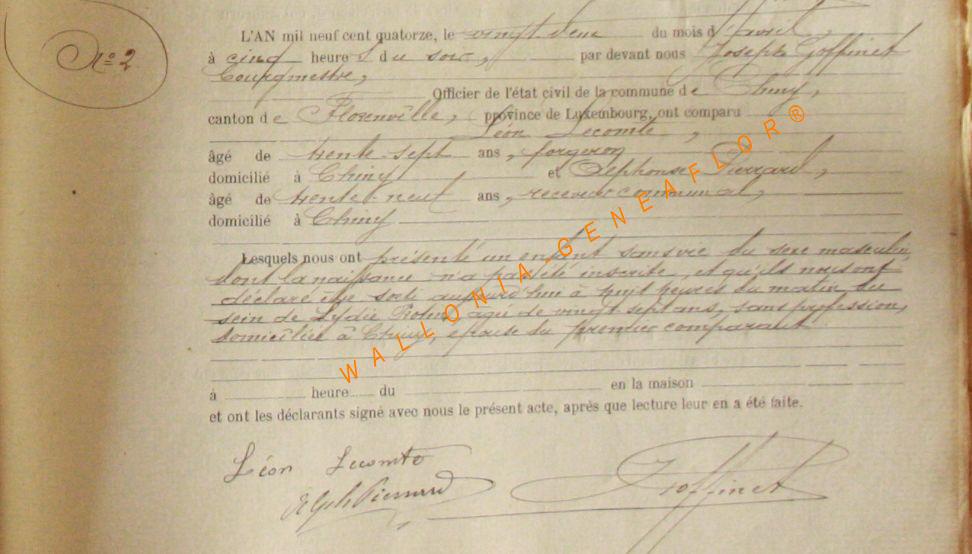 N° 2
L'AN mil neuf cent quatorze, le vingt deux du mois d'avril,
à cinq heures du soir, par devant nous Joseph Goffinet
bourgmestre,
Officier de l'état civil de la commune de Chiny,
canton de Florenville, province de Luxembourg, ont comparu
Léon Lecomte,
âgé de trente-sept ans, forgeron
domicilié à Chiny et Alphonse Pierrard,
âgé de trente-neuf ans, receveur communal,
domicilié à Chiny
Lesquels nous ont présenté un enfant sans vie du sexe masculin,
dont la naissance n'a pas été inscrite, et qu'ils nous ont
déclaré être sorti aujourd'hui à huit heures du matin, du
sein de Lydie âgée de vingt sept ans, sans profession,
domiciliée à Chiny, épouse du premier comparant
à heure du en la maison
et ont les déclarants signé avec nous le présent acte, après que lecture leur en a été faite.
Léon Lecomte
Alph Pierrard
Goffinet
WALLONIA GENEAFLOR®